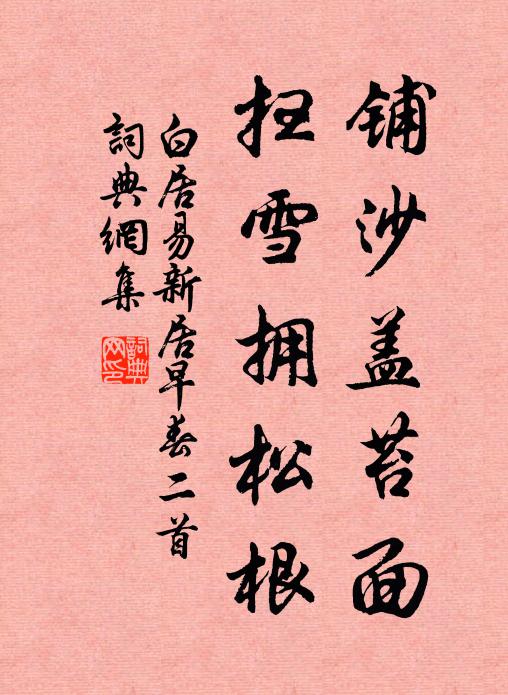 铺沙盖苔面
扫雪拥松根
白居易新居早春二首
詞典網集
詞典网印